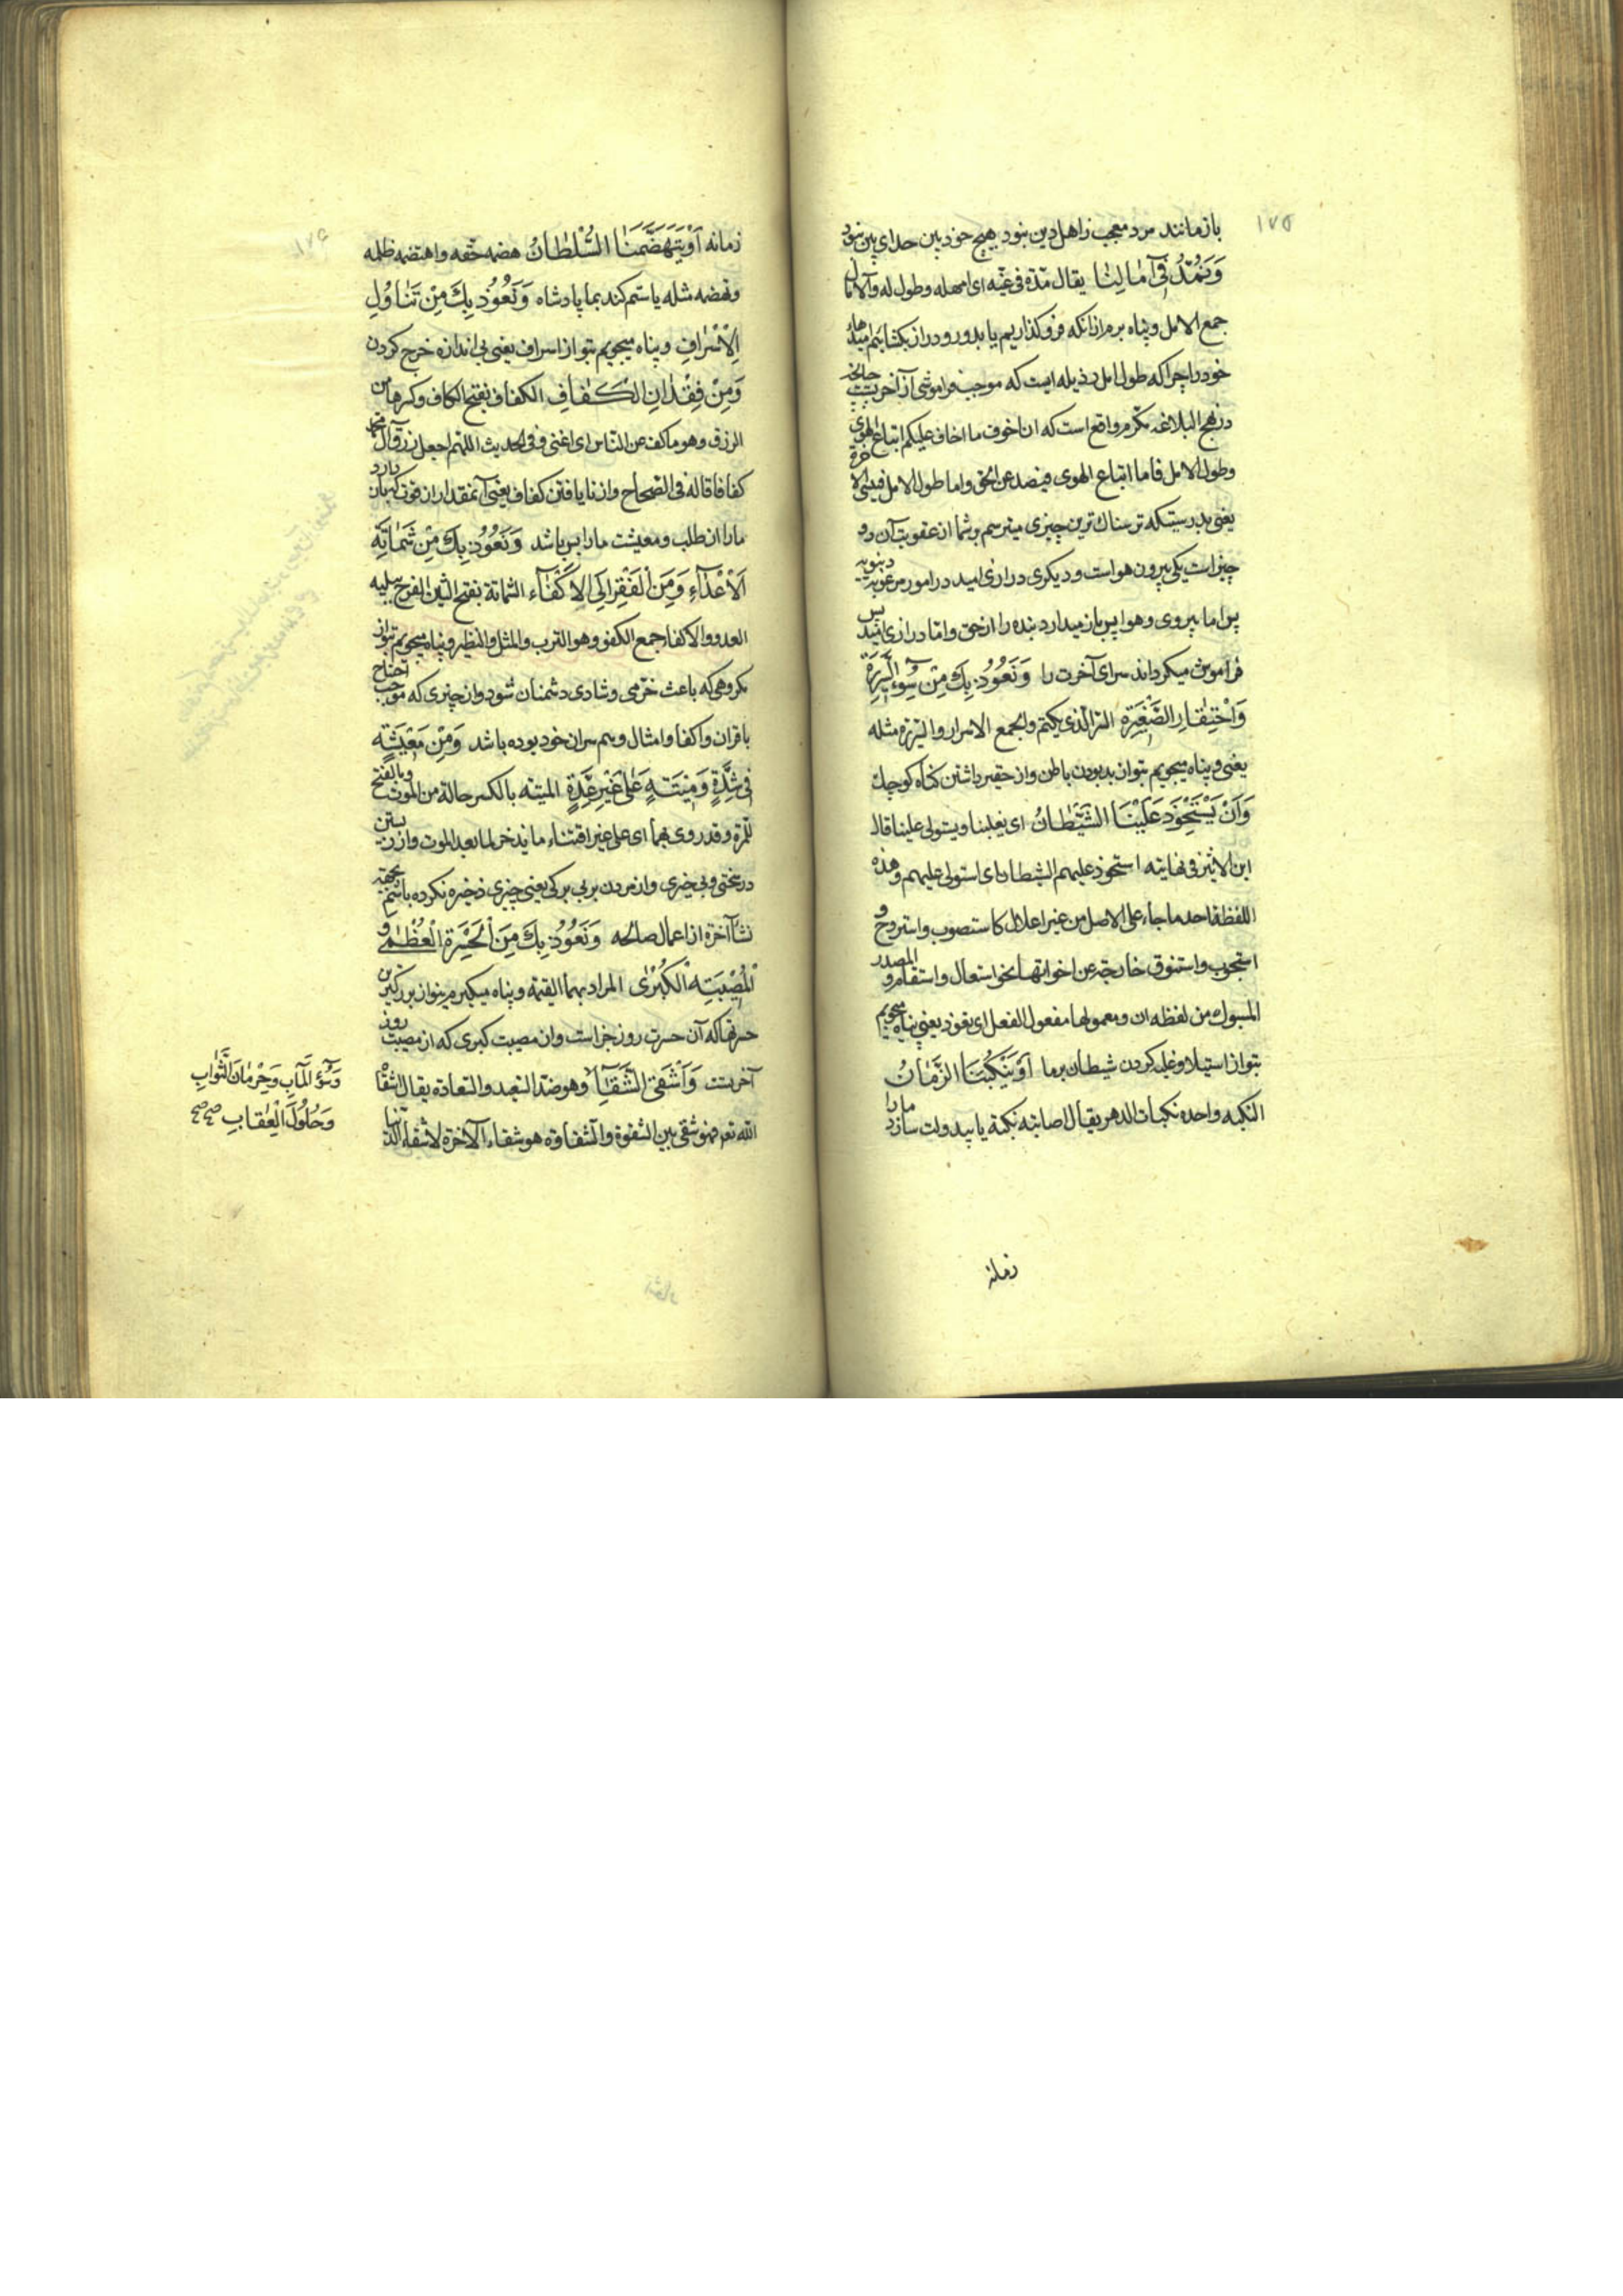 ۱۷۵
بازمانند مرد معجب زاهل دین نبود هیچ خود بین خدای بین نبود
وَنَمُدَّ فِي آمَالِنَا يقال مدّه فى غيّه اى امهله وطول له والآمال
جمع الامل وپناه بریم ازانکه فروکذاریم یا بدور ودراز بکشانیم امیدهاء
خود را چرا که طول امل رذیله ایست که موجب فراموشی از آخرت است چنانچه
در نهج البلاغه مکرم واقع است که ان اخوف ما اخاف علیکم اتباع الهوی
وطول الامل فاما اتباع الهوی فیصد عن الحق واما طول الامل فینسی الاخرة
یعنی بدرستیکه ترسناک ترین چیزی میترسم برشما از عقوبت آن دو
چیز است یکی پیروی هواست ودیکری درازی امید در امور مرغوبه دنیویه
پس اما پیروی وهوا پس بازمیدارد بنده را از حق واما درازی امید پس
فراموش میکرداند سرای آخرت را وَنَعُوذُ بِكَ مِنْ سُوءِ السَّرِيرَةِ
وَاحْتِقَارِ الصَّغِيرَةِ السرّ الّذى يكتم والجمع الاسرار والسّريرة مثله
یعنی وپناه میجویم بتو از بد بودن باطن واز حقیر داشتن کناه کوچک
وَأَنْ يَسْتَحْوِذَ عَلَيْنَا الشَّيْطَانُ اى يغلبنا ويستولى علينا قال
ابن الاثیر فى نهايته استحوذ عليهم الشيطان اى استولى عليهم وهذه
اللفظة احد ما جاء على الاصل من غير اعلال كاستصوب واستروح و
استجوب واستنوق خارجة عن اخواتها نحو استعال واستقام والمصدر
المسبوك من لفظه ان ومعمولها مفعول الفعل اى نعوذ یعنی پناه میجویم
بتو از استیلا وغلبه کردن شیطان برما أَوْ يَنْكُبَنَا الزَّمَانُ
النكبه واحده نكبات الدهر يقال اصابته نكبة یا بیدولت سازد مارا
زمانه
۱۷۶
زمانه أَوْ يَتَهَضَّمَنَا السُّلْطَانُ هضمه حقه واهتضمه ظلمه
وتهضمه مثله یا ستم کند بما پادشاه وَنَعُوذُ بِكَ مِنْ تَنَاوُلِ
الْإِسْرَافِ وپناه میجویم بتو از اسراف یعنی بی اندازه خرج کردن
وَمِنْ فِقْدَانِ الْكَفَافِ الكفاف بفتح الكاف وكسرها من
الرزق وهو ما كف عن الناس اى اغنى وفى الحديث اللهم اجعل رزق آل محمد
كفافا قاله فى الصحاح واز نایافتن کفاف یعنی آنمقدار از قوت که باز دارد
مارا از طلب ومعیشت مارا بس باشد وَنَعُوذُ بِكَ مِنْ شَمَاتَةِ
الْأَعْدَاءِ وَمِنَ الْفَقْرِ إِلَى الْأَكْفَاءِ الشماتة بفتح الشين الفرح ببلية
العدو والاكفاء جمع الكفو وهو الترب والمثل والنظیر وپناه میجویم بتو از
مکروهی که باعث خرّمی وشادی دشمنان شود واز چیزی که موجب احتیاج
باقران واکفا وامثال وهم سران خود بوده باشد وَمِنْ مَعِيشَةٍ
فِي شِدَّةٍ وَمِيتَةٍ عَلَى غَيْرِ عُدَّةٍ الميتة بالكسر حالة من الموت وبالفتح
للمرة وقد روى بهما اى على غير اقتناء ما يدخر لما بعد الموت واز زیستن
درسختی وبی خیری واز مردن بر بی برکی یعنی چیزی ذخیره نکرده باشیم بجهته
نشاٴ آخرة از اعمال صالحه وَنَعُوذُ بِكَ مِنَ الْحَسْرَةِ الْعُظْمَى وَ
الْمُصِيبَةِ الْكُبْرَى المراد بهما القيمة وپناه میکیریم بتو از بزرکترین
حسرتها که آن حسرت روز جزاست واز مصیبت کبری که از مصیبت روز
آخرتست وَأَشْقَى الشَّقَاءِ وهو ضد السعد والسعادة يقال اشقاه
الله تعم فهو شقى بين الشقوة والشقاوة هو شقاء الآخرة لا شقاء الدنيا
وَسُوءِ الْمَآبِ وَحِرْمَانِ الثَّوَابِ
وَحُلُولِ الْعِقَابِ صح صح